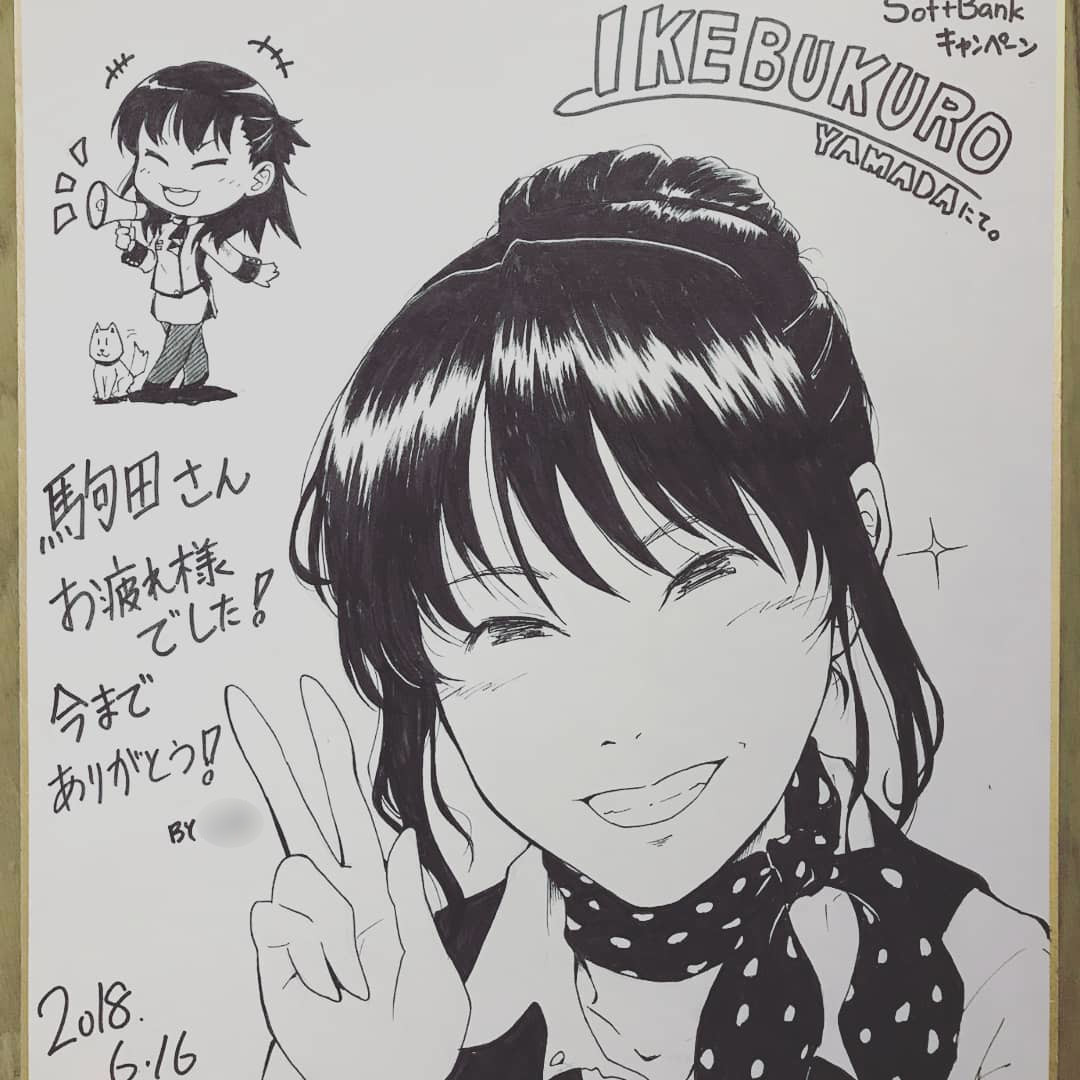 SoftBank
キャンペーン
IKEBUKURO
YAMADAにて。
駒田さん
お疲れ様
でした!
今まで
ありがとう!
BY
2018.
6.16